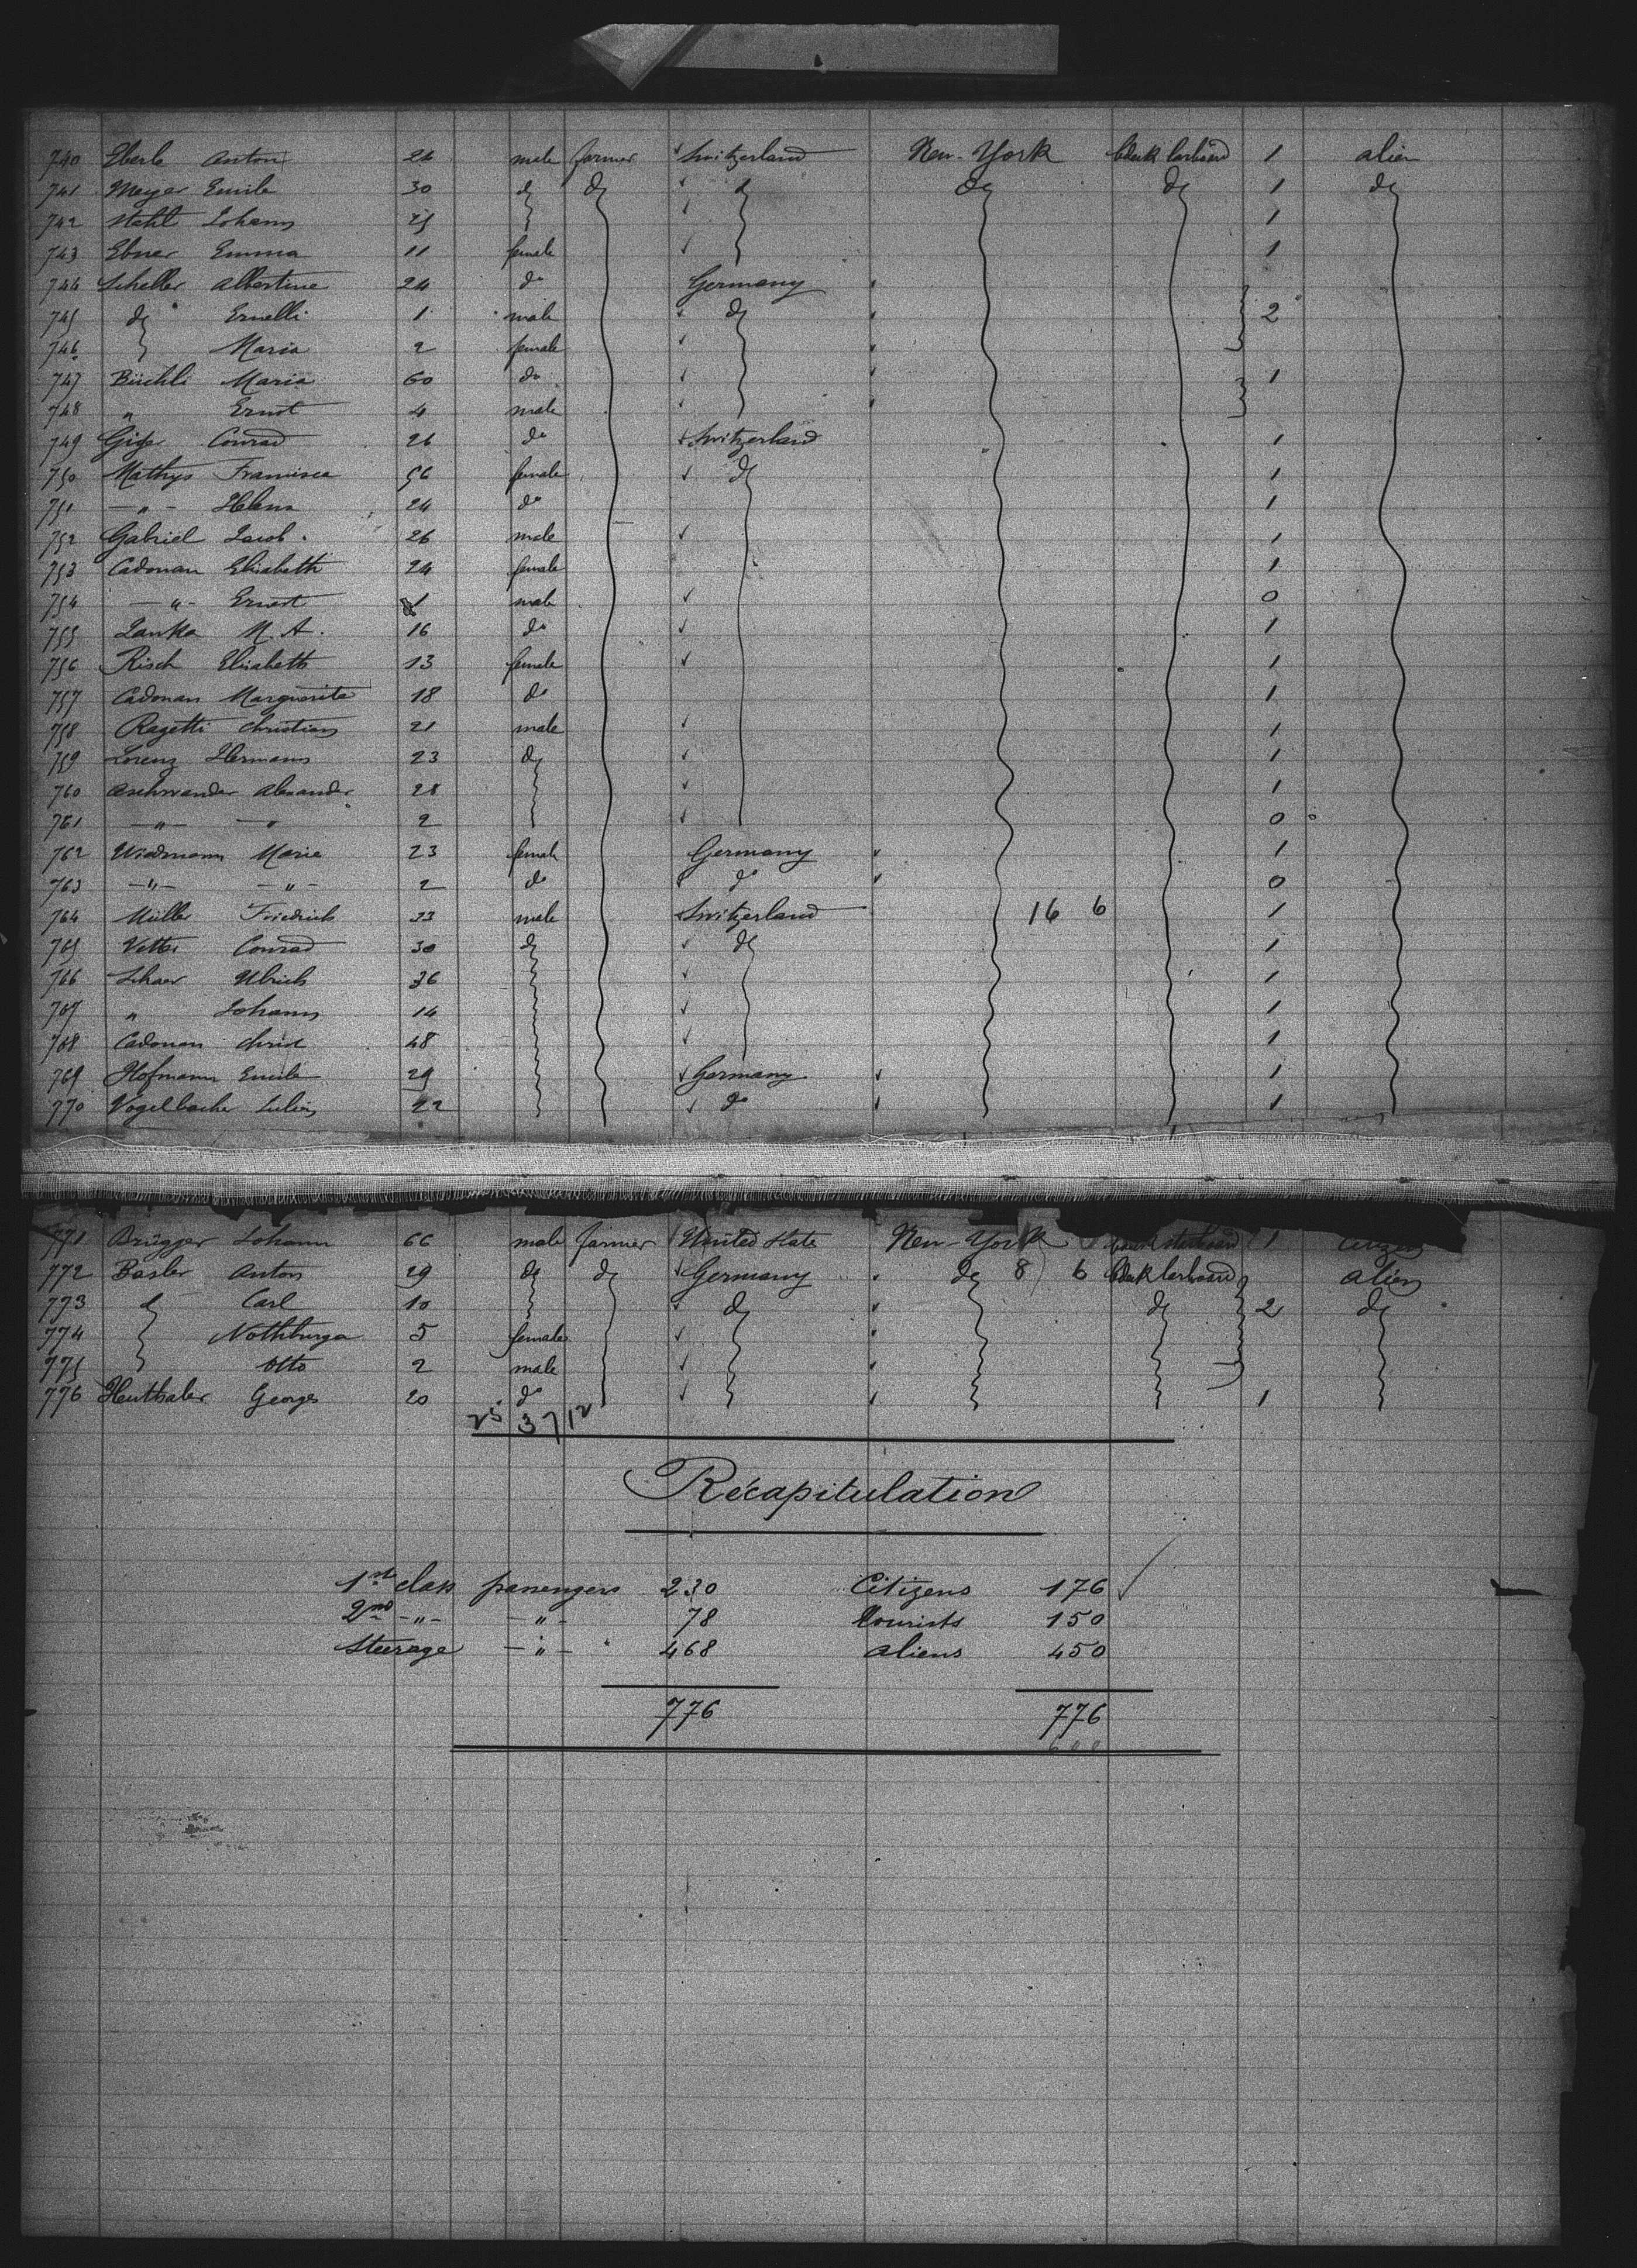 740 Eberle Anton 26 male farmer Switzerland New-York 1 alien
741 Meyer Emile 30 do do do do do 1 do
742 Stahl Johann 25 1
743 Ebner Emma 11 female 1
744 Scheller Albertine 24 do Germany
745 do Ernelli 1 male do 2
746 Maria 2 female
747 Büchli Maria 60 do 1
748 " Ernst 4 male
749 Conrad 26 do Switzerland 1
750 Mathys Francisca 56 female do 1
751 -"- Helena 24 do 1
752 Gabriel Jacob 26 male 1
753 Cadonau Elisabeth 24 female 1
754 -"- Ernest 1 male 0
755 Janka M. A. 16 do 1
756 Risch Elisabeth 13 female 1
757 Cadonau Marguerite 18 do 1
758 Ragetti Christian 21 male 1
759 Lorenz Hermann 23 do 1
760 Aschwander Alexander 28 1
761 -"- -"- 2 0
762 Widmann Marie 23 female Germany 1
763 -"- -"- 2 do do 0
764 Müller Friedrich 33 male Switzerland 16 6 1
765 Vetter Conrad 30 do do 1
766 Schaer Ulrich 36 1
767 " Johann 14 1
768 Cadonau Christ 48 1
769 Hofmann Emile 29 Germany 1
770 Vogelbache Julius 22 do 1
771 Brügger Johann 66 male farmer United State New-York 1 citizen
772 Basler Anton 29 do do Germany do 8 6 deck larboard alien
773 do Carl 10 do do 2 do
774 Nothburga 5 female
775 Otto 2 male
776 Heuthaler Georges 20 do 1
25 37 12
Récapitulation
1st class passengers 230 Citizens 176
2nd -"- -"- 78 tourists 150
Steerage -"- 468 aliens 450
776 776